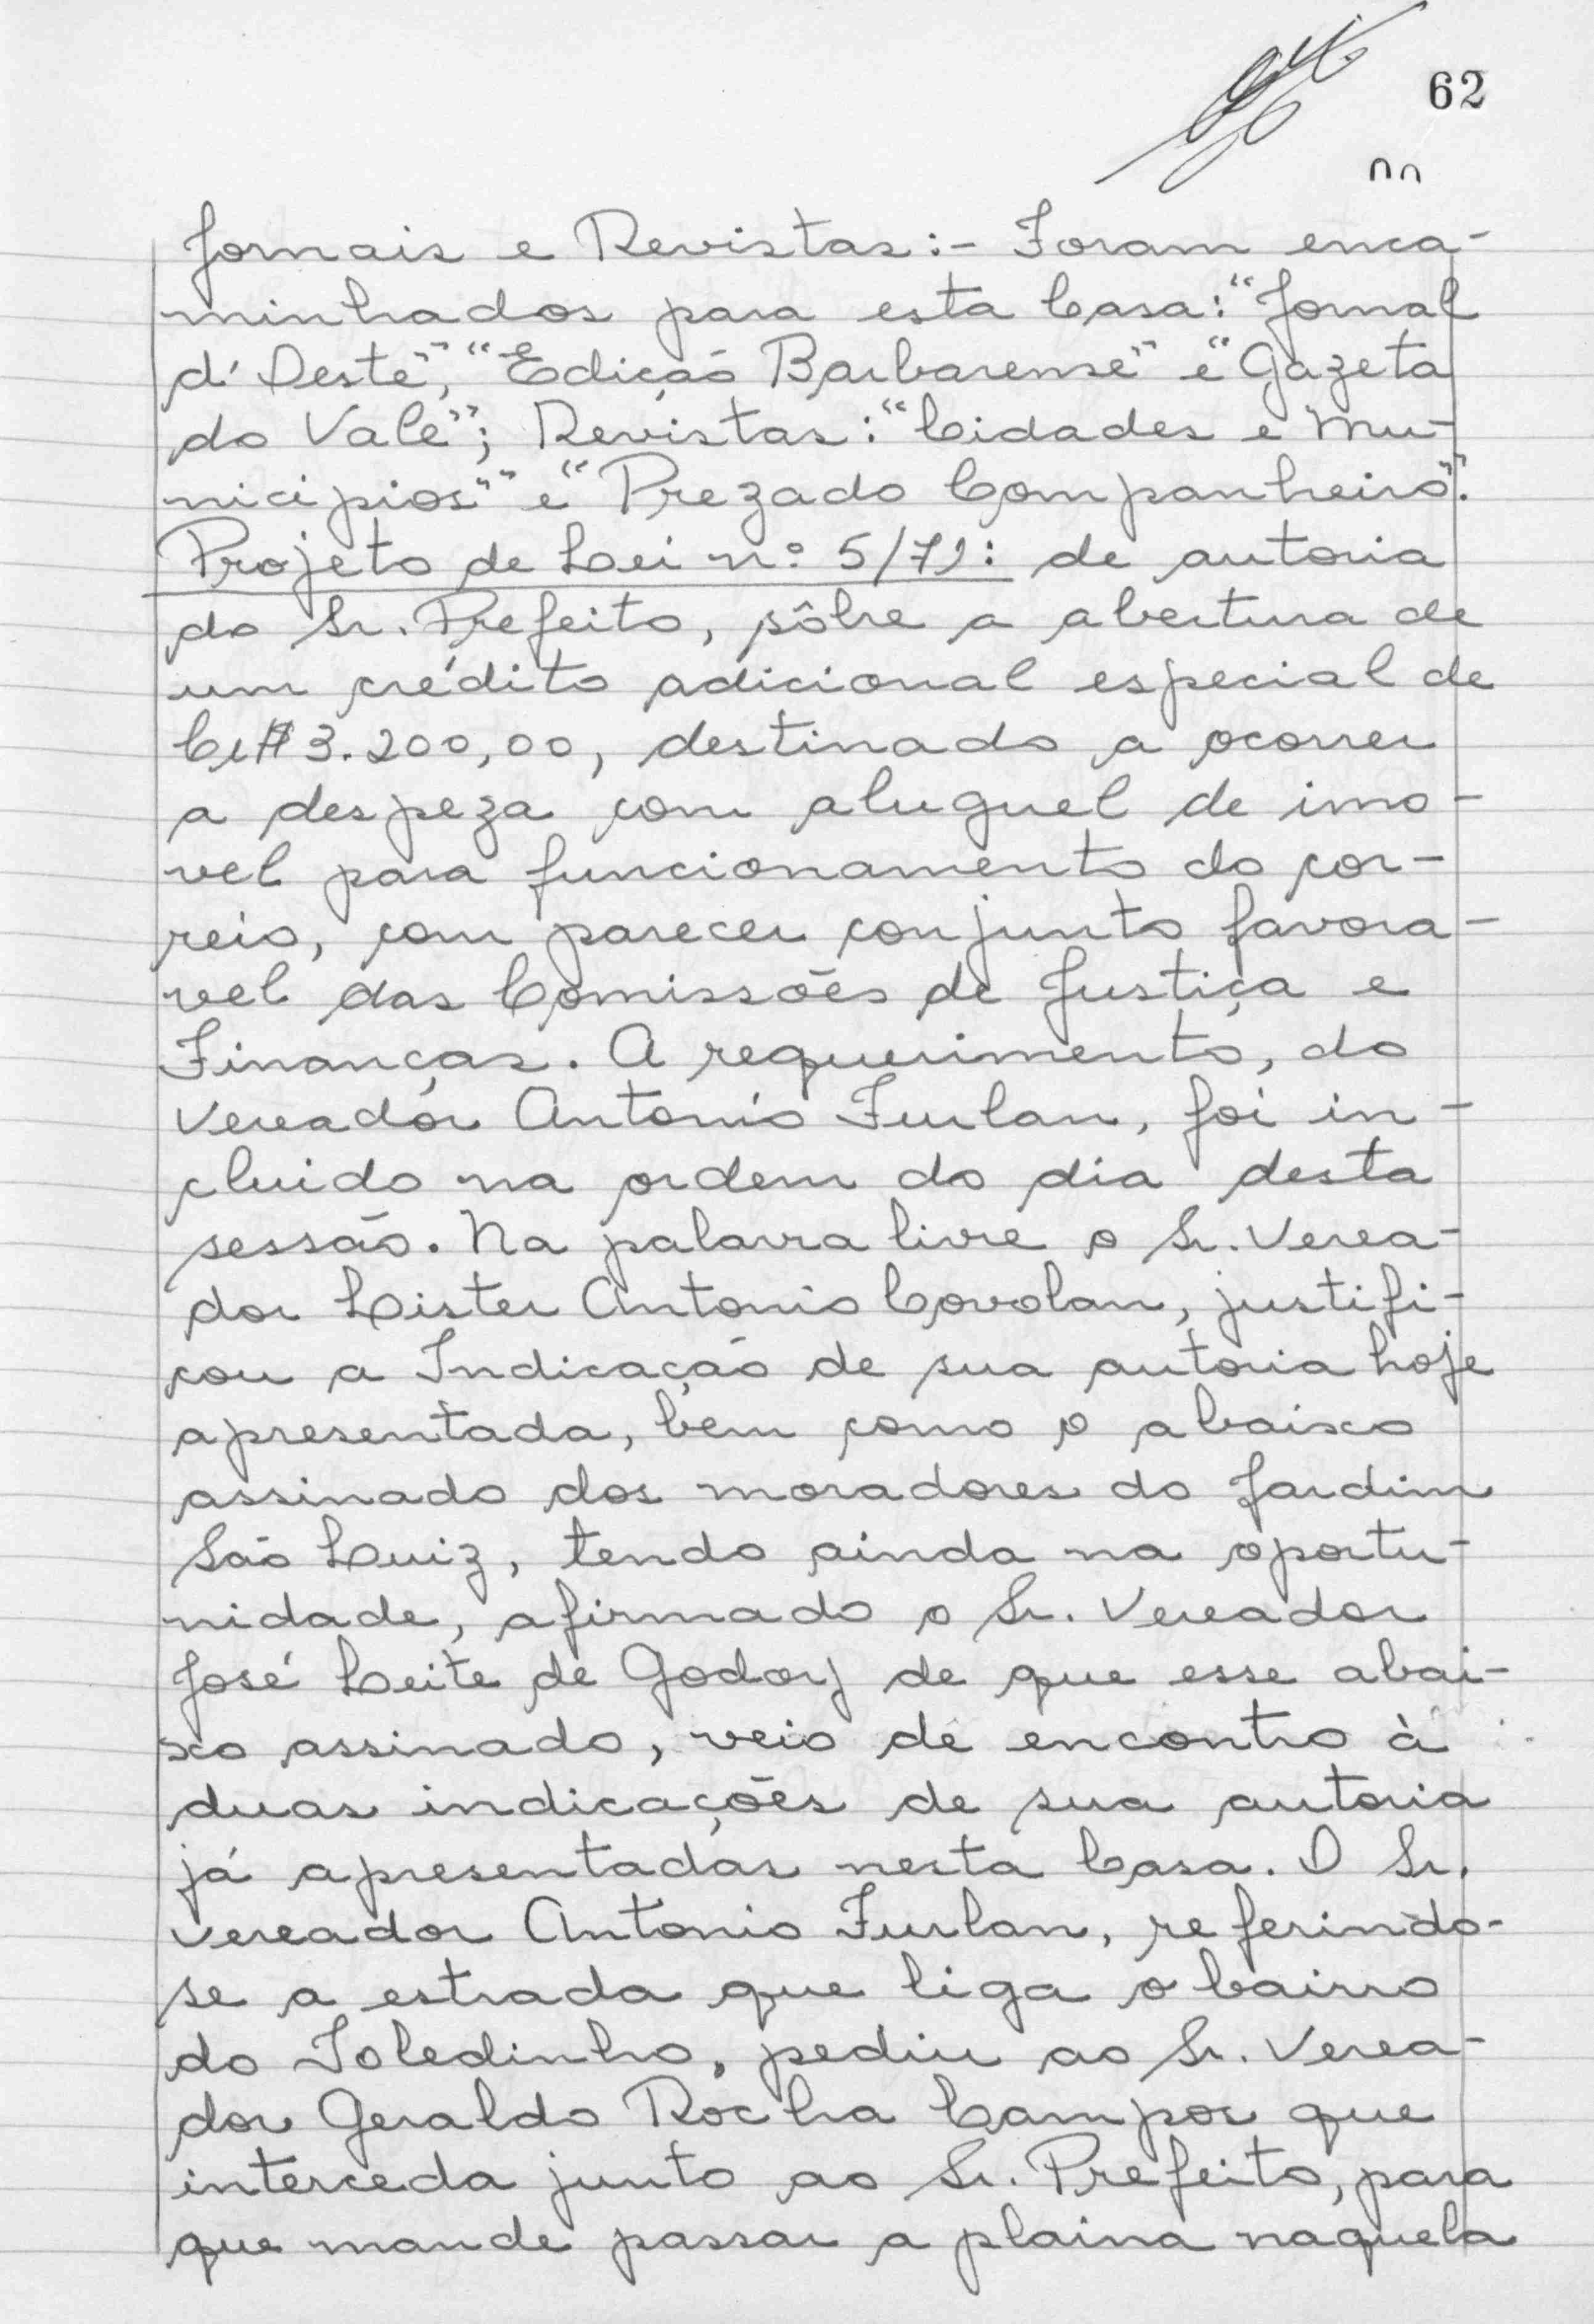 62
Jornais e Revistas:- Foram enca-
minhados para esta Casa: "Jornal
d'Oeste", "Edição Barbarense" e "Gazeta
do Vale"; Revistas: "Cidades e Mu-
nicipios" e "Prezado Companheiro".
Projeto de Lei nº 5/71: de autoria
do Sr. Prefeito, sôbre a abertura de
um crédito adicional especial de
Cr$ 3.200,00, destinado a ocorrer
a despeza com aluguel de imo-
vel para funcionamento do cor-
reio, com parecer conjunto favora-
vel das Comissões de Justiça e
Finanças. A requerimento, do
Vereador Antonio Furlan, foi in-
cluido na ordem do dia desta
sessão. Na palavra livre o Sr. Verea-
dor Lister Antonio Covolan, justifi-
cou a Indicação de sua autoria hoje
apresentada, bem como o abaixo
assinado dos moradores do Jardim
São Luiz, tendo ainda na oportu-
nidade, afirmado o Sr. Vereador
José Leite de Godoy de que esse abai-
xo assinado, veio de encontro à
duas indicações de sua autoria
já apresentadas nesta Casa. O Sr.
Vereador Antonio Furlan, referindo-
se a estrada que liga o bairro
do Toledinho, pediu ao Sr. Verea-
dor Geraldo Rocha Campos que
interceda junto ao Sr. Prefeito, para
que mande passar a plaina naquela